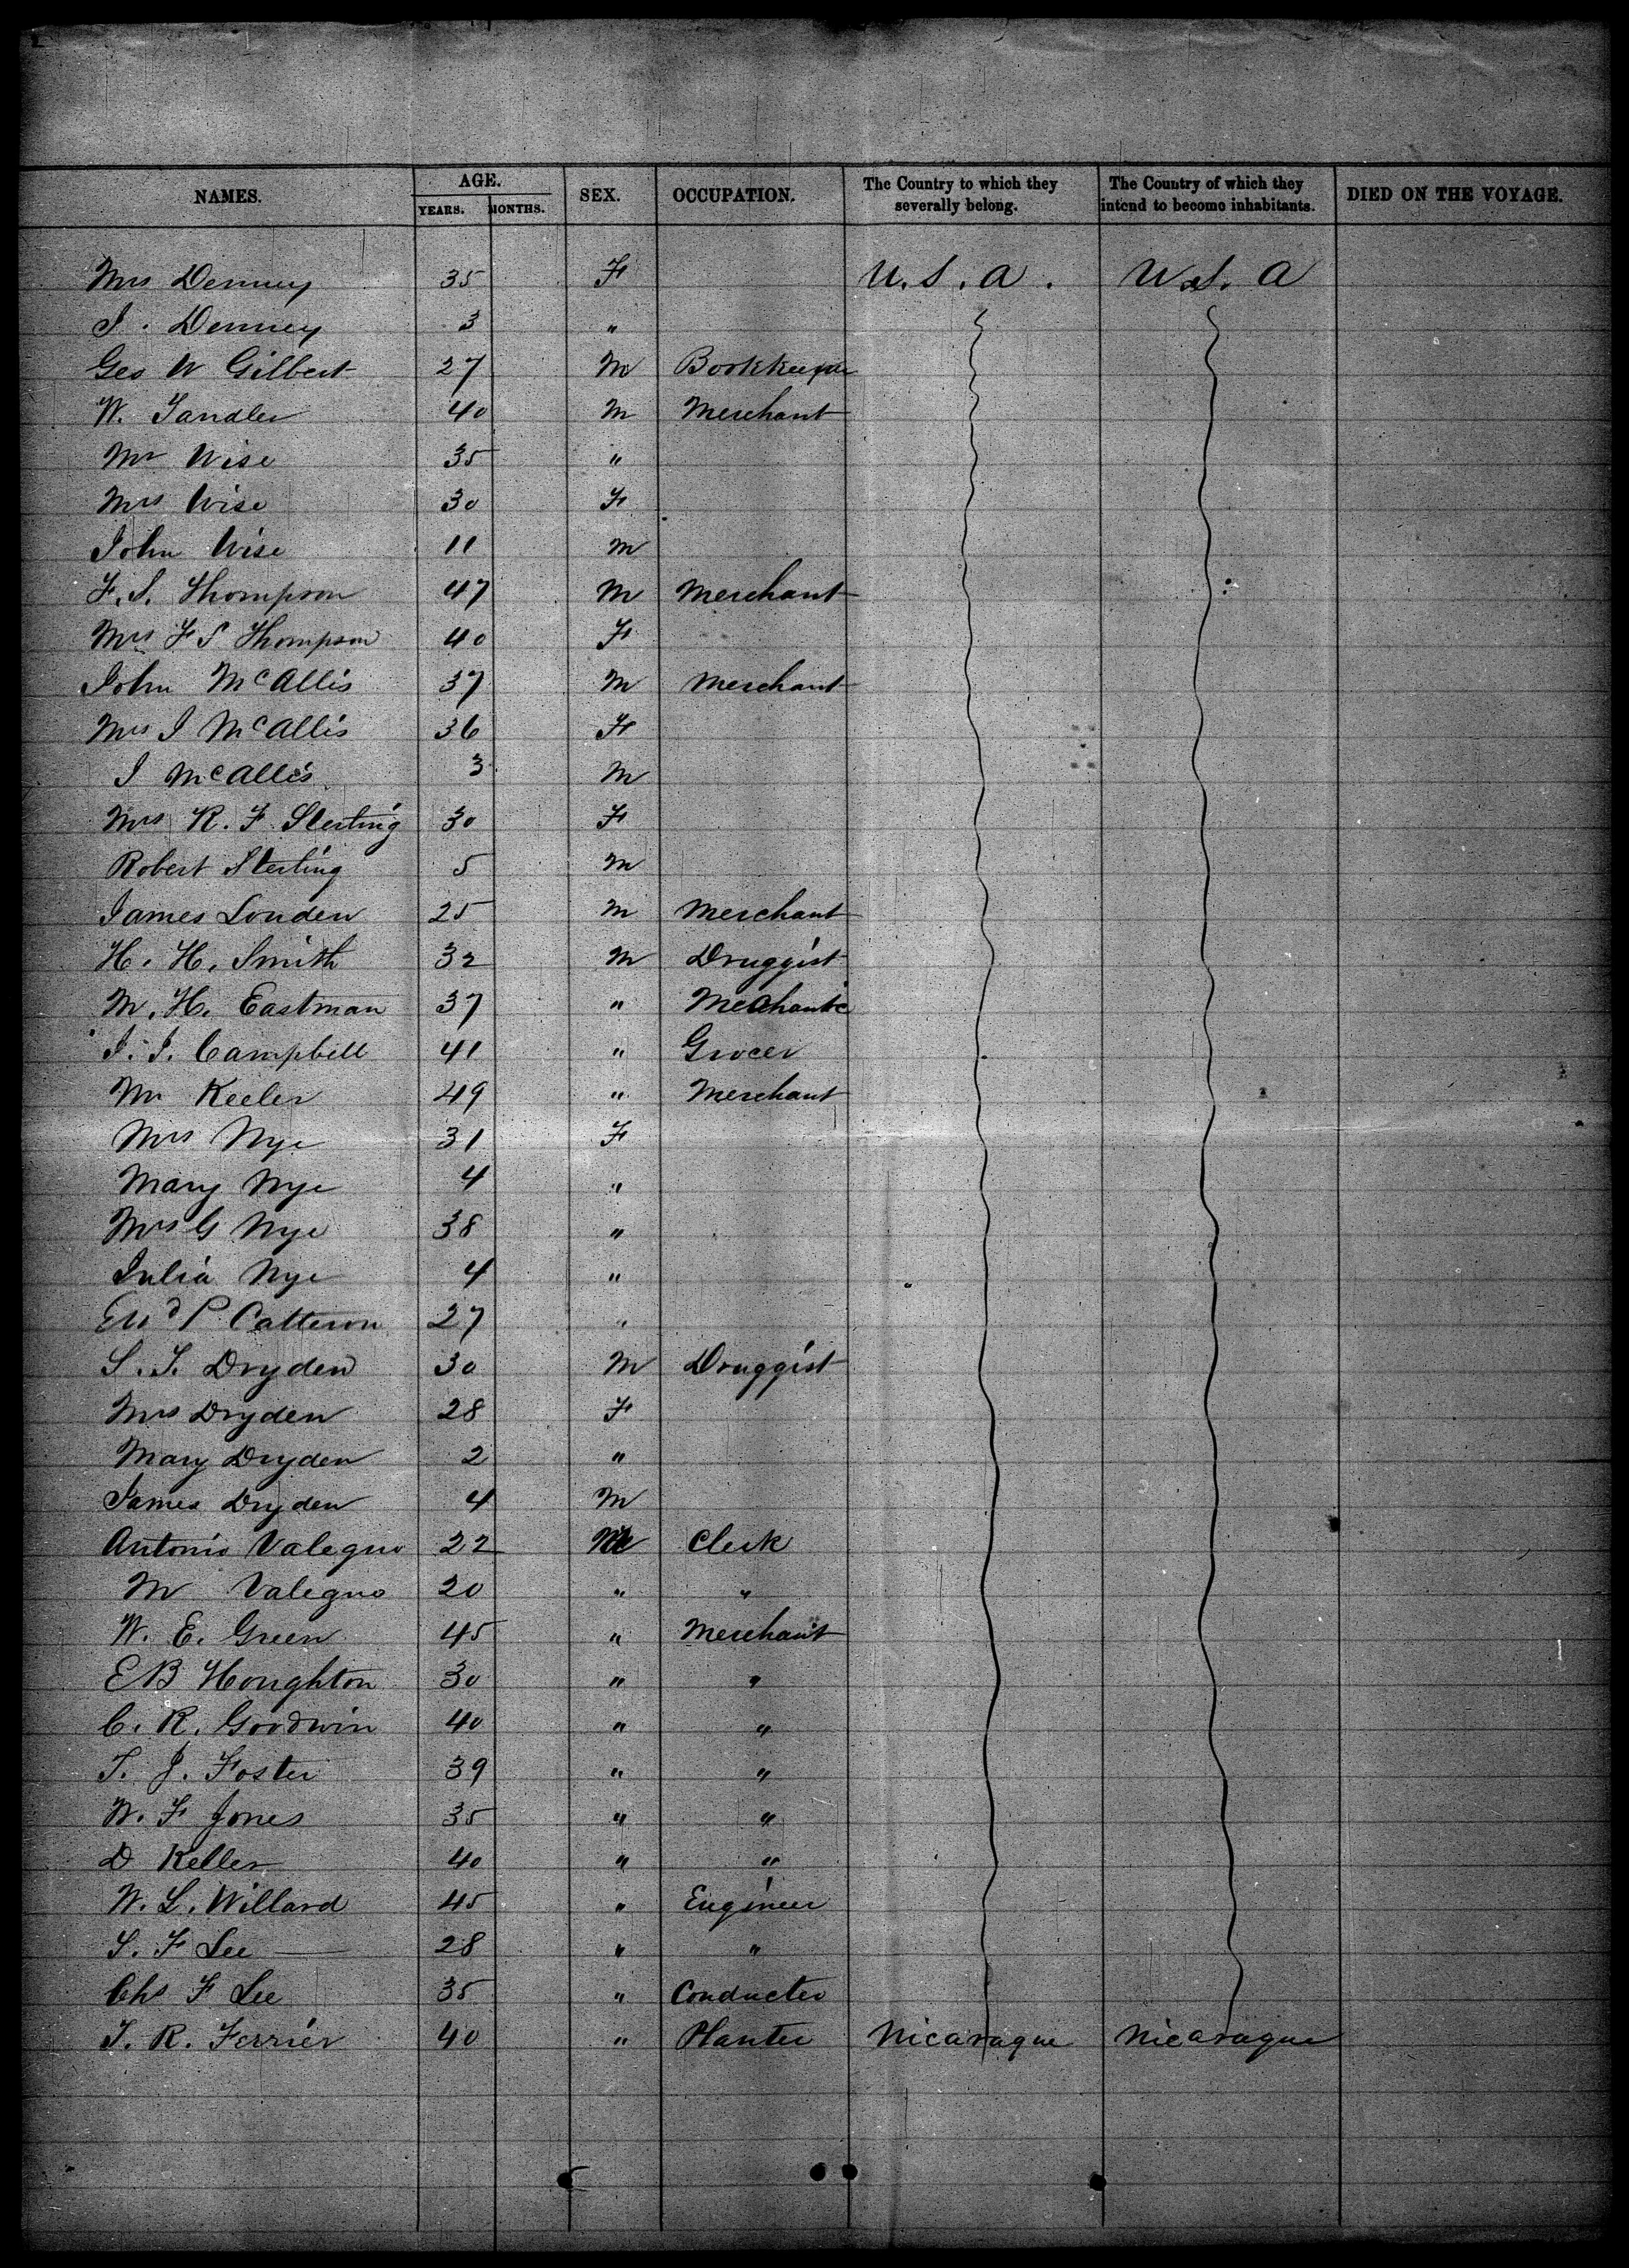 NAMES. AGE. YEARS. MONTHS. SEX. OCCUPATION. The Country to which they severally belong. The Country of which they intend to become inhabitants. DIED ON THE VOYAGE.
Mrs Denney 35 F U.S.A. U.S.A
J. Denney 3 "
Geo W Gilbert 27 M Bookkeeper
W. Tandler 40 M Merchant
Mr Wise 35 "
Mrs Wise 30 F
John Wise 11 M
F. S. Thompson 47 M Merchant
Mrs F S Thompson 40 F
John McAllis 37 M Merchant
Mrs J McAllis 36 F
J McAllis 3 M
Mrs R. F. Sterling 30 F
Robert Sterling 5 M
James Louden 25 M Merchant
H. H. Smith 32 M Druggist
M. H. Eastman 37 " Mechanic
J. J. Campbell 41 " Grocer
Mr Keeler 49 " Merchant
Mrs Nye 31 F
Mary Nye 4 "
Mrs G Nye 38 "
Julia Nye 4 "
P Catteron 27 "
S. T. Dryden 30 M Druggist
Mrs Dryden 28 F
Mary Dryden 2 "
James Dryden 4 M
Antonio Valegno 22 M Clerk
M Valegno 20 " "
W. E. Green 45 " Merchant
E B Houghton 30 " "
C. R. Goodwin 40 " "
T. J. Foster 39 " "
W. F Jones 35 " "
D Keller 40 " "
W. L. Willard 45 " Engineer
S. F Lee 28 " "
Chs F Lee 35 " Conducter
T. R. Ferrier 40 " Planter Nicarague Nicarague